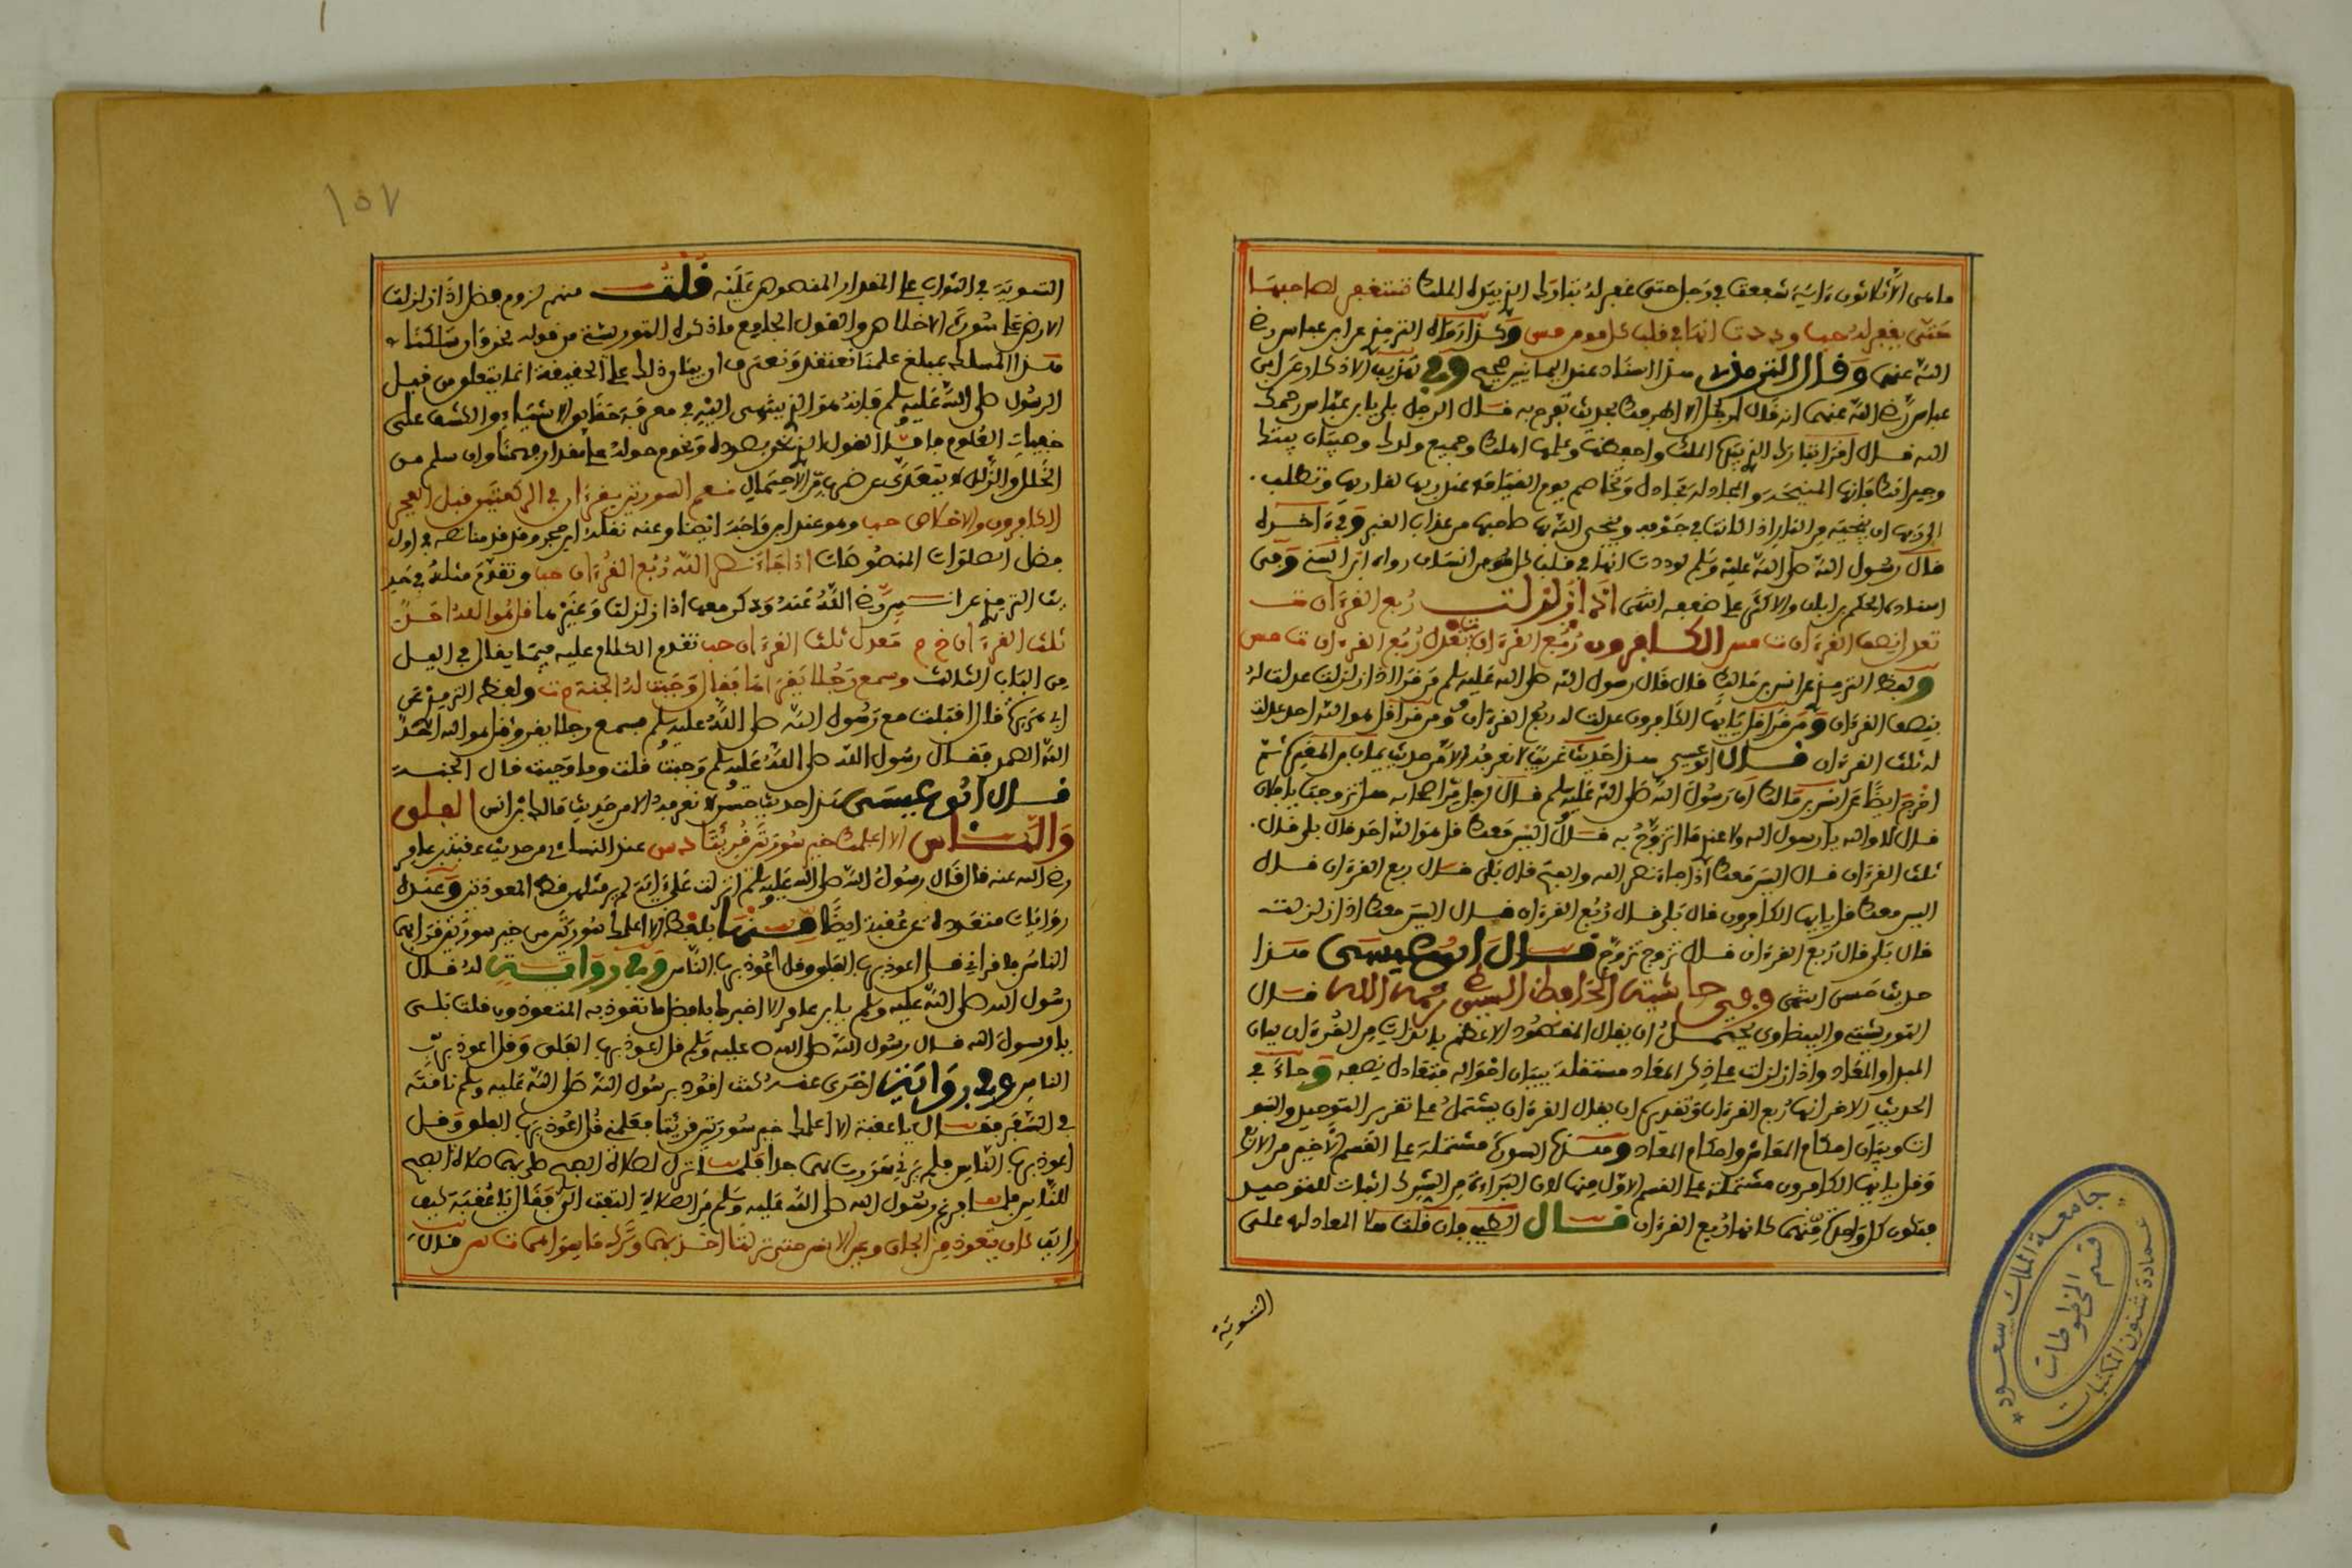 ما هي الا ثلاثون ءاية شفعت في رجل حتى غفر له تبارك الذي بيده الملك تستغفر لصاحبها
حتى يغفر له حب وددت انها في قلب كل مومن مس وكذا رواه الترمذي عن ابن عباس رضي
الله عنهما وقال الترمذي هذا اسناد عند اليمانيين صحيح وفي الاذكار عن ابن
عباس رضي الله عنهما انه قال لرجل الا اطرفك بحديث تفرح به قال الرجل بلى يابن عباس رحمك
الله قال اقرا تبارك الذي بيده الملك واحفظها وعلمها اهلك وجميع ولدك وصبيان بيتك
وجيرانك فانها المنجية والمجادلة تجادل وتخاصم يوم القيامة عند ربها لقاريها وتطلب
الى ربها ان ينجيه من النار اذا كانت في جوفه وينجي الله بها صاحبها من عذاب القبر وفي ءاخره
قال رسول الله صلى الله عليه وسلم لوددت انها في قلب كل انسان رواه ابن السني وفي
اسناده الحكم بن ابان والاكثر على ضعفه انتهى اذا زلزلت ربع القرءان ت
تعدل نصف القرءان ت مس الكافرون ربع القرءان ت تعدل ربع القرءان ت مس
ولفظ الترمذي عن انس بن مالك قال قال رسول الله صلى الله عليه وسلم من قرا اذا زلزلت عدلت له
بنصف القرءان ومن قرا قل يايها الكافرون عدلت له ربع القرءان ومن قرا قل هو الله احد عدلت
له ثلث القرءان قال ابو عيسى هذا حديث غريب لا نعرفه الا من حديث ثم
اخرج ايضا عن انس بن مالك ان رسول الله صلى الله عليه وسلم قال لرجل من اصحابه هل تزوجت يا فلان
قال لا والله يا رسول الله ولا عندي ما اتزوج به قال اليس معك قل هو الله احد قال بلى قال
ثلث القرءان قال اليس معك اذا جاء نصر الله والفتح قال بلى قال ربع القرءان قال
اليس معك قل يايها الكافرون قال بلى قال ربع القرءان قال اليس معك اذا زلزلت
قال بلى قال ربع القرءان قال تزوج تزوج قال ابو عيسى هذا
حديث حسن انتهى وفي حاشية الحافظ السيوطي رحمه الله قال
التوربشتي والبيضاوي يحتمل ان يقال المقصود الاعظم بالذات من القرءان بيان
المبدا والمعاد واذا زلزلت على ذكر المعاد مستقلة ببيان احواله فتعادل نصفه وجاء في
الحديث الاخر انها ربع القرءان وتقديره ان يقال القرءان يشتمل على تقرير التوحيد والنبو
ات وبيان احكام المعاش واحكام المعاد وهذه السورة مشتملة على القسم الاخير من الاربع
وقل يايها الكافرون مشتملة على القسم الاول منها لان البراءة من الشرك اثبات للتوحيد
فيكون كل واحدة منهما كانها ربع القرءان قال الطيبي فان قلت هلا المعادلة على
التسوية
١٥٧
التسوية في الثواب على المقدار المنصوص عليه قلت منعهم لزوم فضل اذا زلزلت
الارض على سورة الاخلاص والقول الجامع ما ذكره التوربشتي من قوله نحن وان سلكنا
هذا المسلك بمبلغ علمنا نعتقد ونعترف ان بيان ذلك على الحقيقة انما يتعلق من قبل
الرسول صلى الله عليه وسلم فانه هو الذي ينتهى اليه في معرفة حقائق الاشياء والكشف على
خفيات العلوم فاما القول الذي نحن بصدده ونحوم حوله على مقدار فهمنا وان سلم من
الخلل والزلل لا يتعدى عن ضرب من الاحتمال نعم السورتين يقرءان في الركعتين قبل الفجر
الكافرون والاخلاص حب وهو عند ابن ماجه ايضا وعنه نقله ابن حجر وقد قدمنا نصه في اول
فضل الصلوات المنصوصات اذا جاء نصر الله ربع القرءان ت وتقدم مثله في حد
يث الترمذي عن انس رضي الله عنه وذكر معها اذا زلزلت وغيرها قل هو الله احد
ثلث القرءان خ م تعدل ثلث القرءان حب تقدم الكلام عليه فيما يقال في الليل
من الباب الثالث وسمع رجلا يقرا بها فقال وجبت له الجنة ت ولفظ الترمذي عن
ابي هريرة قال اقبلت مع رسول الله صلى الله عليه وسلم فسمع رجلا يقرا قل هو الله احد
الله الصمد فقال رسول الله صلى الله عليه وسلم وجبت قلت وما وجبت قال الجنة
قال ابو عيسى هذا حديث حسن لا نعرفه الا من حديث مالك بن انس الفلق
والناس الا اعلمك خير سورتين قرئتا د س عند النساءي من حديث عقبة بن عامر
رضي الله عنه قال قال رسول الله صلى الله عليه وسلم انزلت علي ءايات لم ير مثلهن قط المعوذتين وعنده
روايات متعددة عن عقبة ايضا منها بلفظ الا اعلمك سورتين من خير سورتين قرا بهما
الناس فاقراني قل اعوذ برب الفلق وقل اعوذ برب الناس وفي رواية له قال
رسول الله صلى الله عليه وسلم يابن عامر الا اخبرك بافضل ما تعوذ به المتعوذون قلت بلى
يا رسول الله قال رسول الله صلى الله عليه وسلم قل اعوذ برب الفلق وقل اعوذ برب
الناس وفي رواية اخرى عنه كنت اقود برسول الله صلى الله عليه وسلم ناقته
في السفر فقال يا عقبة الا اعلمك خير سورتين قرئتا فعلمني قل اعوذ برب الفلق وقل
اعوذ برب الناس فلم يرني سررت بهما جدا فلما نزل لصلاة الصبح صلى بهما صلاة الصبح
للناس فلما فرغ رسول الله صلى الله عليه وسلم من الصلاة التفت الي فقال يا عقبة كيف
رايت كان يتعوذ من الجان وعين الانسان حتى نزلتا اخذ بهما وترك ما سواهما ت س قال
جامعة الملك سعود
عمادة شئون المكتبات
قسم المخطوطات